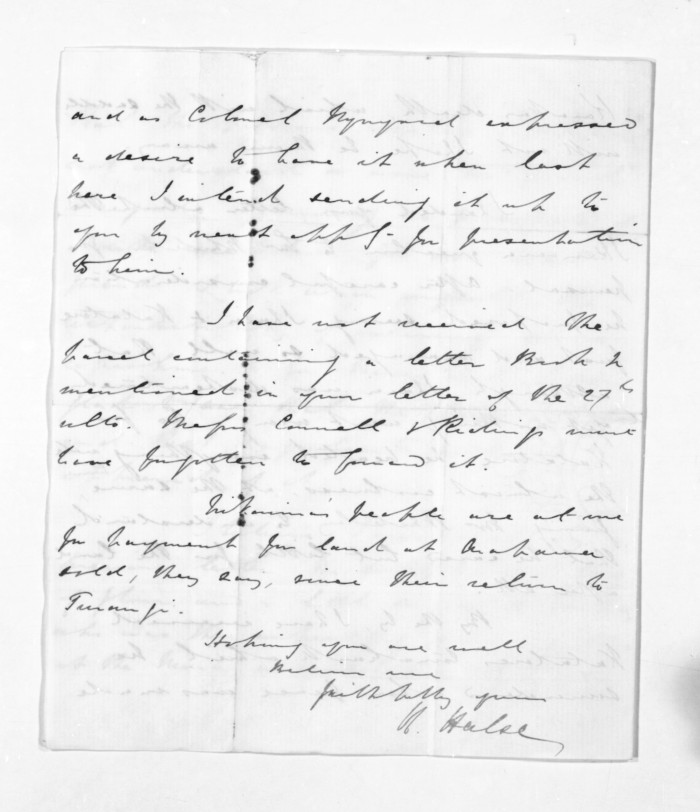 and as Colonel Wynyard expressed
a desire to have it when last
here I intend sending it up to
you by next oppy. for presentation
to him.
I have not received the
parcel containing a letter Book &c
mentioned in your letter of the 27th
ulto. Messrs Connell & Ridings must
have forgotten to forward it.
people are at me
for payment for land at
sold, they say, since their return to
Turangi.
Hoping you are well
Believe me
faithfully yours
H. Halse